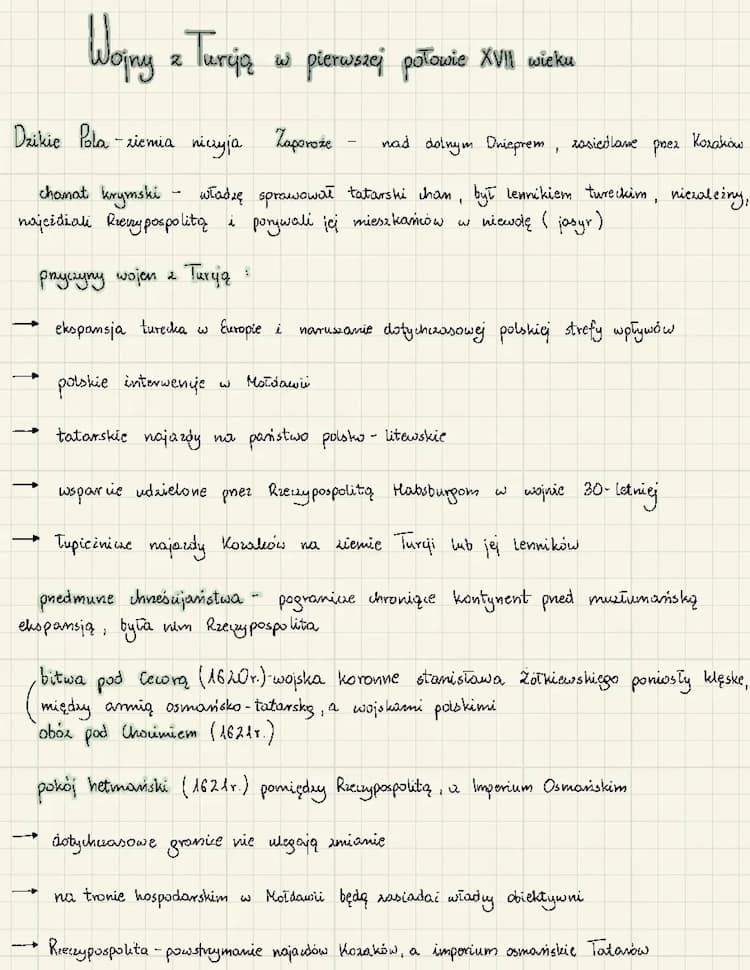 Wojny z Turcją w pierwszej połowie XVII wieku
Dzikie Pola - ziemia niczyja Zaporoże - nad dolnym Dnieprem, zasiedlane przez Kozaków
chanat krymski - władzę sprawował tatarski chan, był lennikiem tureckim, niezależny,
najeżdżali Rzeczypospolitą i porywali jej mieszkańców w niewolę (jasyr)
przyczyny wojen z Turcją :
→ ekspansja turecka w Europie i naruszanie dotychczasowej polskiej strefy wpływów
→ polskie interwencje w Mołdawii
→ tatarskie najazdy na państwo polsko-litewskie
→ wsparcie udzielone przez Rzeczypospolitą Habsburgom w wojnie 30-letniej
→ Łupieżnicze najazdy Kozaków na ziemie Turcji lub jej lenników
przedmurze chrześcijaństwa - pogranicze chroniące kontynent przed muzłumańską
ekspansją, była nim Rzeczypospolita
bitwa pod Cecorą (1620r.)-wojska koronne stanisława Żółkiewskiego poniosły klęskę,
między armią osmańsko-tatarską, a wojskami polskimi
obóz pod Chocimiem (1621r.)
pokój hetmański (1621r.) pomiędzy Rzeczypospolitą, a Imperium Osmańskim
→ dotychczasowe granice nie ulegają zmianie
→ na tronie hospodarskim w Mołdawii będą zasiadać władcy obiektywni
→ Rzeczypospolita - powstrzymanie najazdów Kozaków, a imperium osmańskie Tatarów